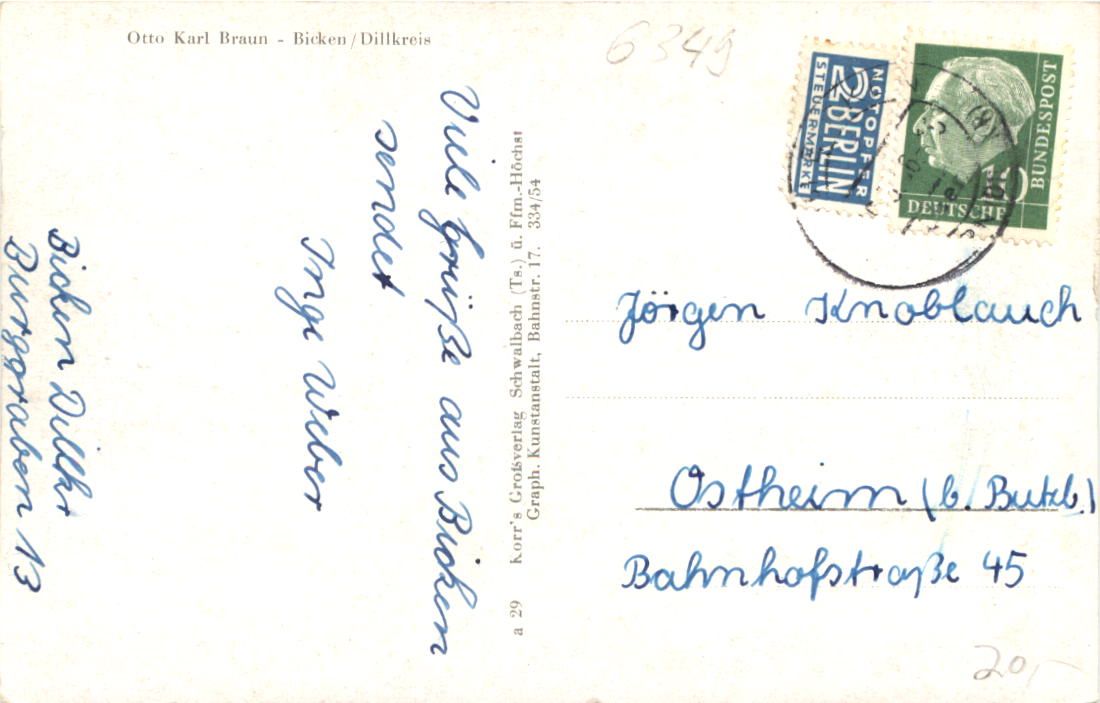 Otto Karl Braun - Bicken/Dillkreis
6349
NOTOPFER
2 BERLIN
STEUERMARKE
DEUTSCHE
BUNDESPOST
10
Viele Grüße aus Bicken
sendet
Inge Weber
Bicken Dillkr
Burggraben 13
a 29 Korr's Großverlag Schwalbach (Ts.) ü. Ffm.-Höchst
Graph. Kunstanstalt, Bahnstr. 17. 334/54
Jörgen Knoblauch
Ostheim (b. Butzb.)
Bahnhofstraße 45
20,-